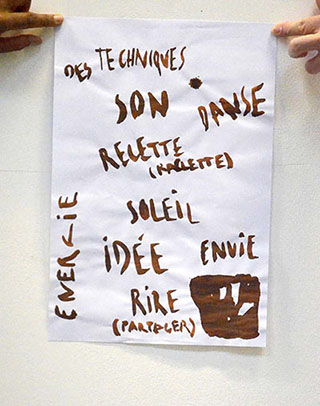 DES TECHNIQUES
SON
DANSE
RECETTE
(RACLETTE)
SOLEIL
ENERGIE
IDÉE
ENVIE
RIRE
(PARTAGER)